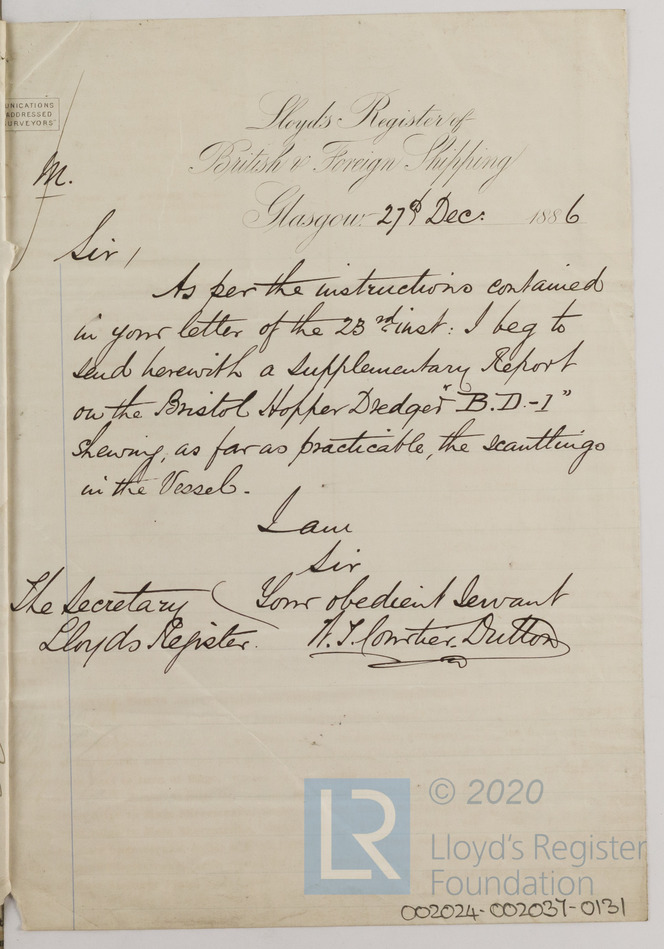 UNICATIONS
ADDRESSED
URVEYORS"
Lloyd's Register of
British & Foreign Shipping
M.
Glasgow. 27th Dec: 1886
Sir,
As per the instructions contained
in your letter of the 23rd inst: I beg to
send herewith a supplementary Report
on the Bristol Hopper Dredger "B.D.-1"
shewing, as far as practicable, the scantlings
in the Vessel.
I am
Sir
Your obedient Servant
The Secretary
Lloyds Register.
W. T. Courtier-Dutton
© 2020
LR
Lloyd's Register
Foundation
002024-002037-0131